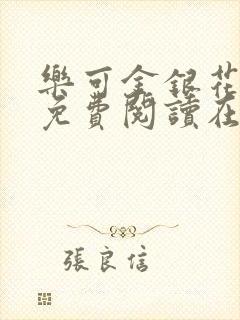 樂可金銀花
免費閱讀在
張良信